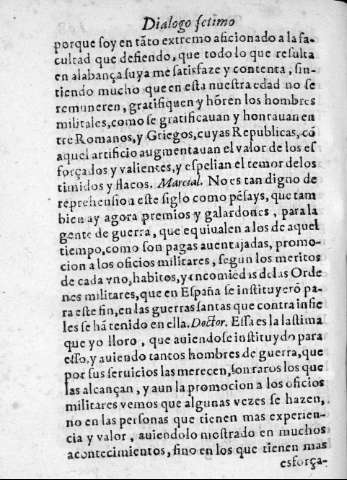 Dialogo setimo
porque soy en tãto extremo aficionado a la fa-
cultad que defiendo, que todo lo que resulta
en alabança suya me satisfaze y contenta, sin-
tiendo mucho que en esta nuestra edad no se
remuneren, gratifiquen y hõren los hombres
militales, como se gratificauan y honrauan en
tre Romanos, y Griegos, cuyas Republicas, cõ
aquel artificio augmentauan el valor de los es
forçados y valientes, y espelian el temor delos
timidos y flacos. Marcial. No es tan digno de
reprehension este siglo como pẽsays, que tam
bien ay agora premios y galardones, para la
gente de guerra, que equiualen a los de aquel
tiempo, como son pagas auentajadas, promo-
cion a los oficios militares, segun los meritos
de cada vno, habitos, y encomiẽdas delas Orde
nes militares, que en España se instituyerõ pa-
ra este fin, en las guerras santas que contra infie
les se hã tenido en ella. Doctor. Essa es la lastima
que yo lloro, que auiendose instituydo para
esso, y auiendo tantos hombres de guerra, que
por sus seruicios las merecen, son raros los que
las alcançan, y aun la promocion a los oficios
militares vemos que algunas vezes se hazen,
no en las personas que tienen mas experien-
cia y valor, auiendolo mostrado en muchos
acontecimientos, sino en los que tienen mas
esforça-